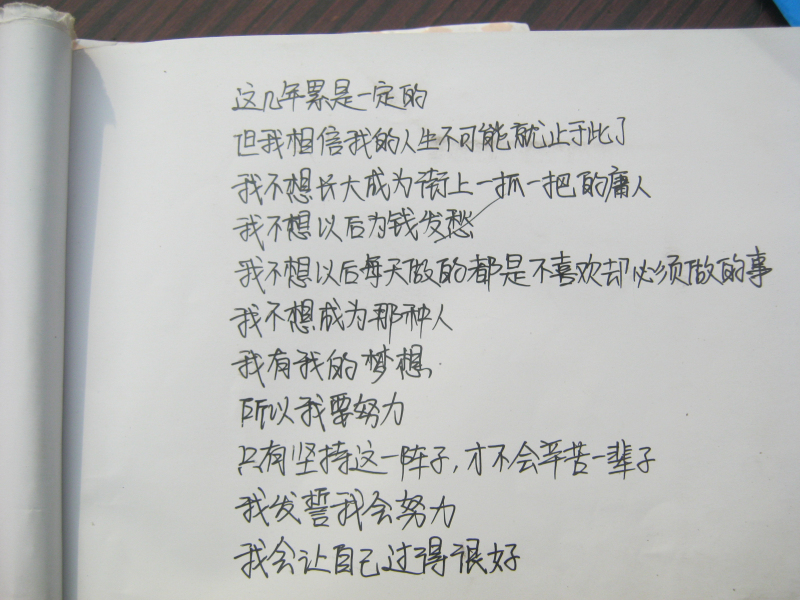 这几年累是一定的
但我相信我的人生不可能就止于此了
我不想长大成为街上一抓一把的庸人
我不想以后为钱发愁
我不想以后每天做的都是不喜欢却必须做的事
我不想成为那种人
我有我的梦想.
所以我要努力
只有坚持这一阵子,才不会辛苦一辈子
我发誓我会努力
我会让自己过得很好